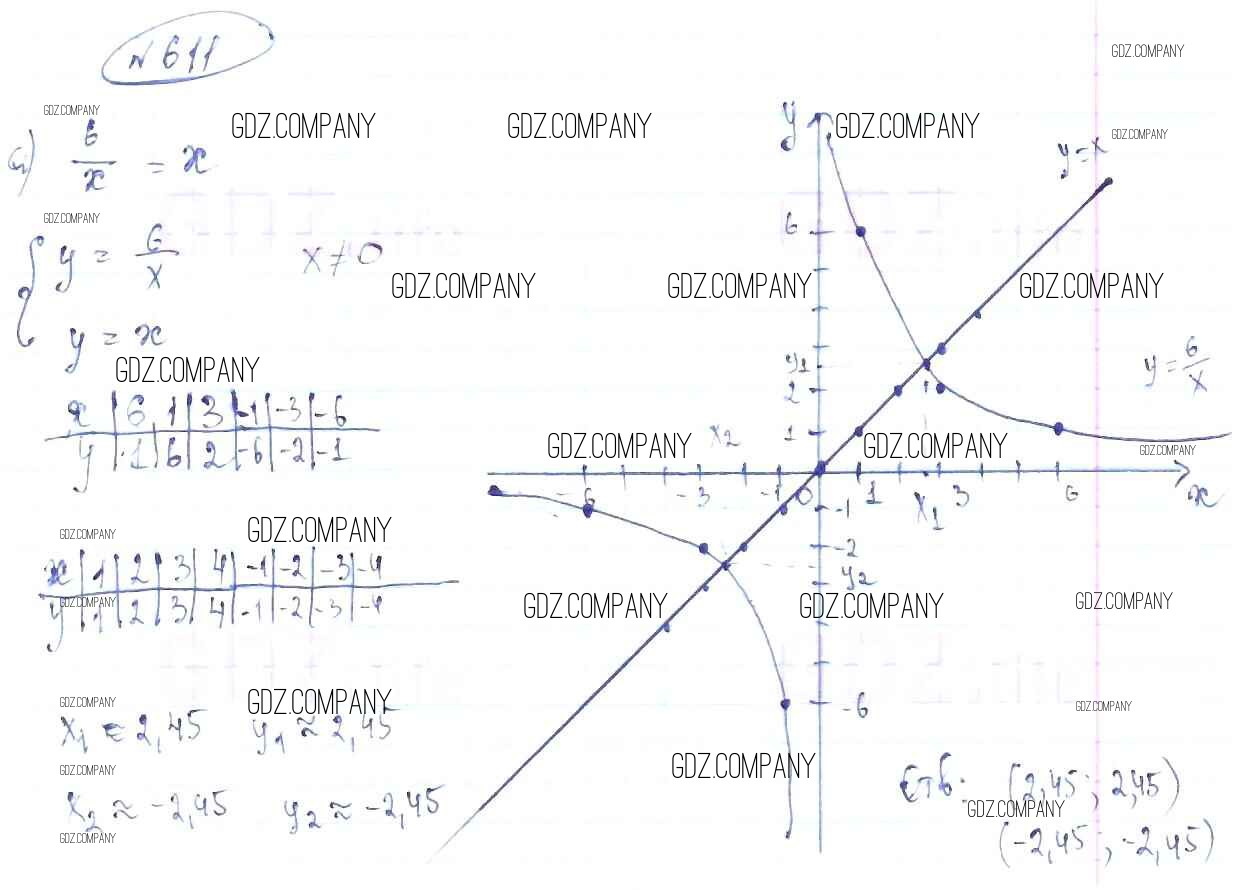 N 611
GDZ.COMPANY
GDZ.COMPANY GDZ.COMPANY GDZ.COMPANY GDZ.COMPANY GDZ.COMPANY
а) 6/x = x
y = x
GDZ.COMPANY
{ y = 6/x x ≠ 0
y = x
GDZ.COMPANY GDZ.COMPANY GDZ.COMPANY
GDZ.COMPANY
x | 6 | 1 | 3 | -1 | -3 | -6
y | 1 | 6 | 2 | -6 | -2 | -1
GDZ.COMPANY GDZ.COMPANY
x | 1 | 2 | 3 | 4 | -1 | -2 | -3 | -4
y | 1 | 2 | 3 | 4 | -1 | -2 | -3 | -4
GDZ.COMPANY
GDZ.COMPANY GDZ.COMPANY
x₁ ≈ 2,45 y₁ ≈ 2,45
GDZ.COMPANY
x₂ ≈ -2,45 y₂ ≈ -2,45
GDZ.COMPANY
y
6
y₁
2
1
y = 6/x
GDZ.COMPANY x₂ GDZ.COMPANY GDZ.COMPANY
-6 -3 -1 0 1 x₁ 3 6 x
-1
-2
y₂
GDZ.COMPANY GDZ.COMPANY GDZ.COMPANY
-6
GDZ.COMPANY
GDZ.COMPANY
Отв. (2,45; 2,45)
GDZ.COMPANY
(-2,45; -2,45)